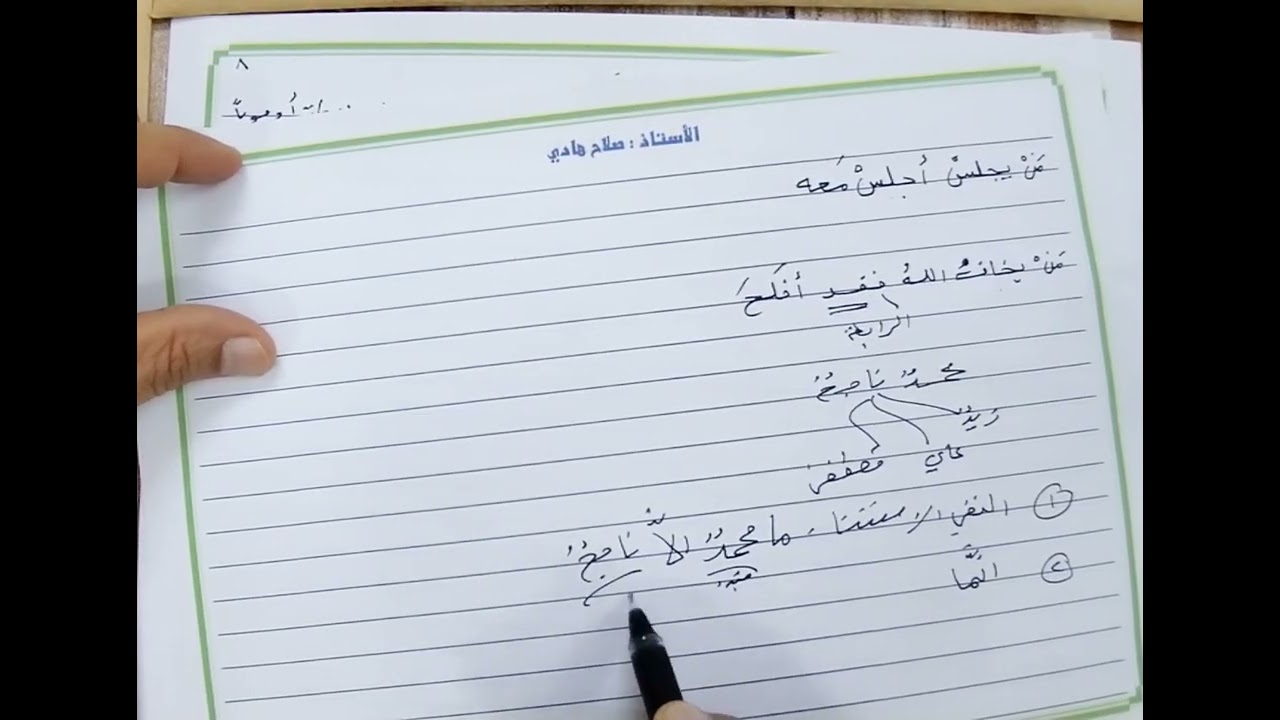 ٨
الأستاذ : صلاح هادي
مَنْ يجلسْ أجلسْ مَعه
مَنْ يخافُ اللهَ فقد أفلَحَ
الرابطة
محمدٌ ناجحٌ
زيدٌ
علي
مصطفى
١ النفي الاستثناء ما محمدٌ إلاّ ناجحٌ
مبتدأ
٢ انَّما